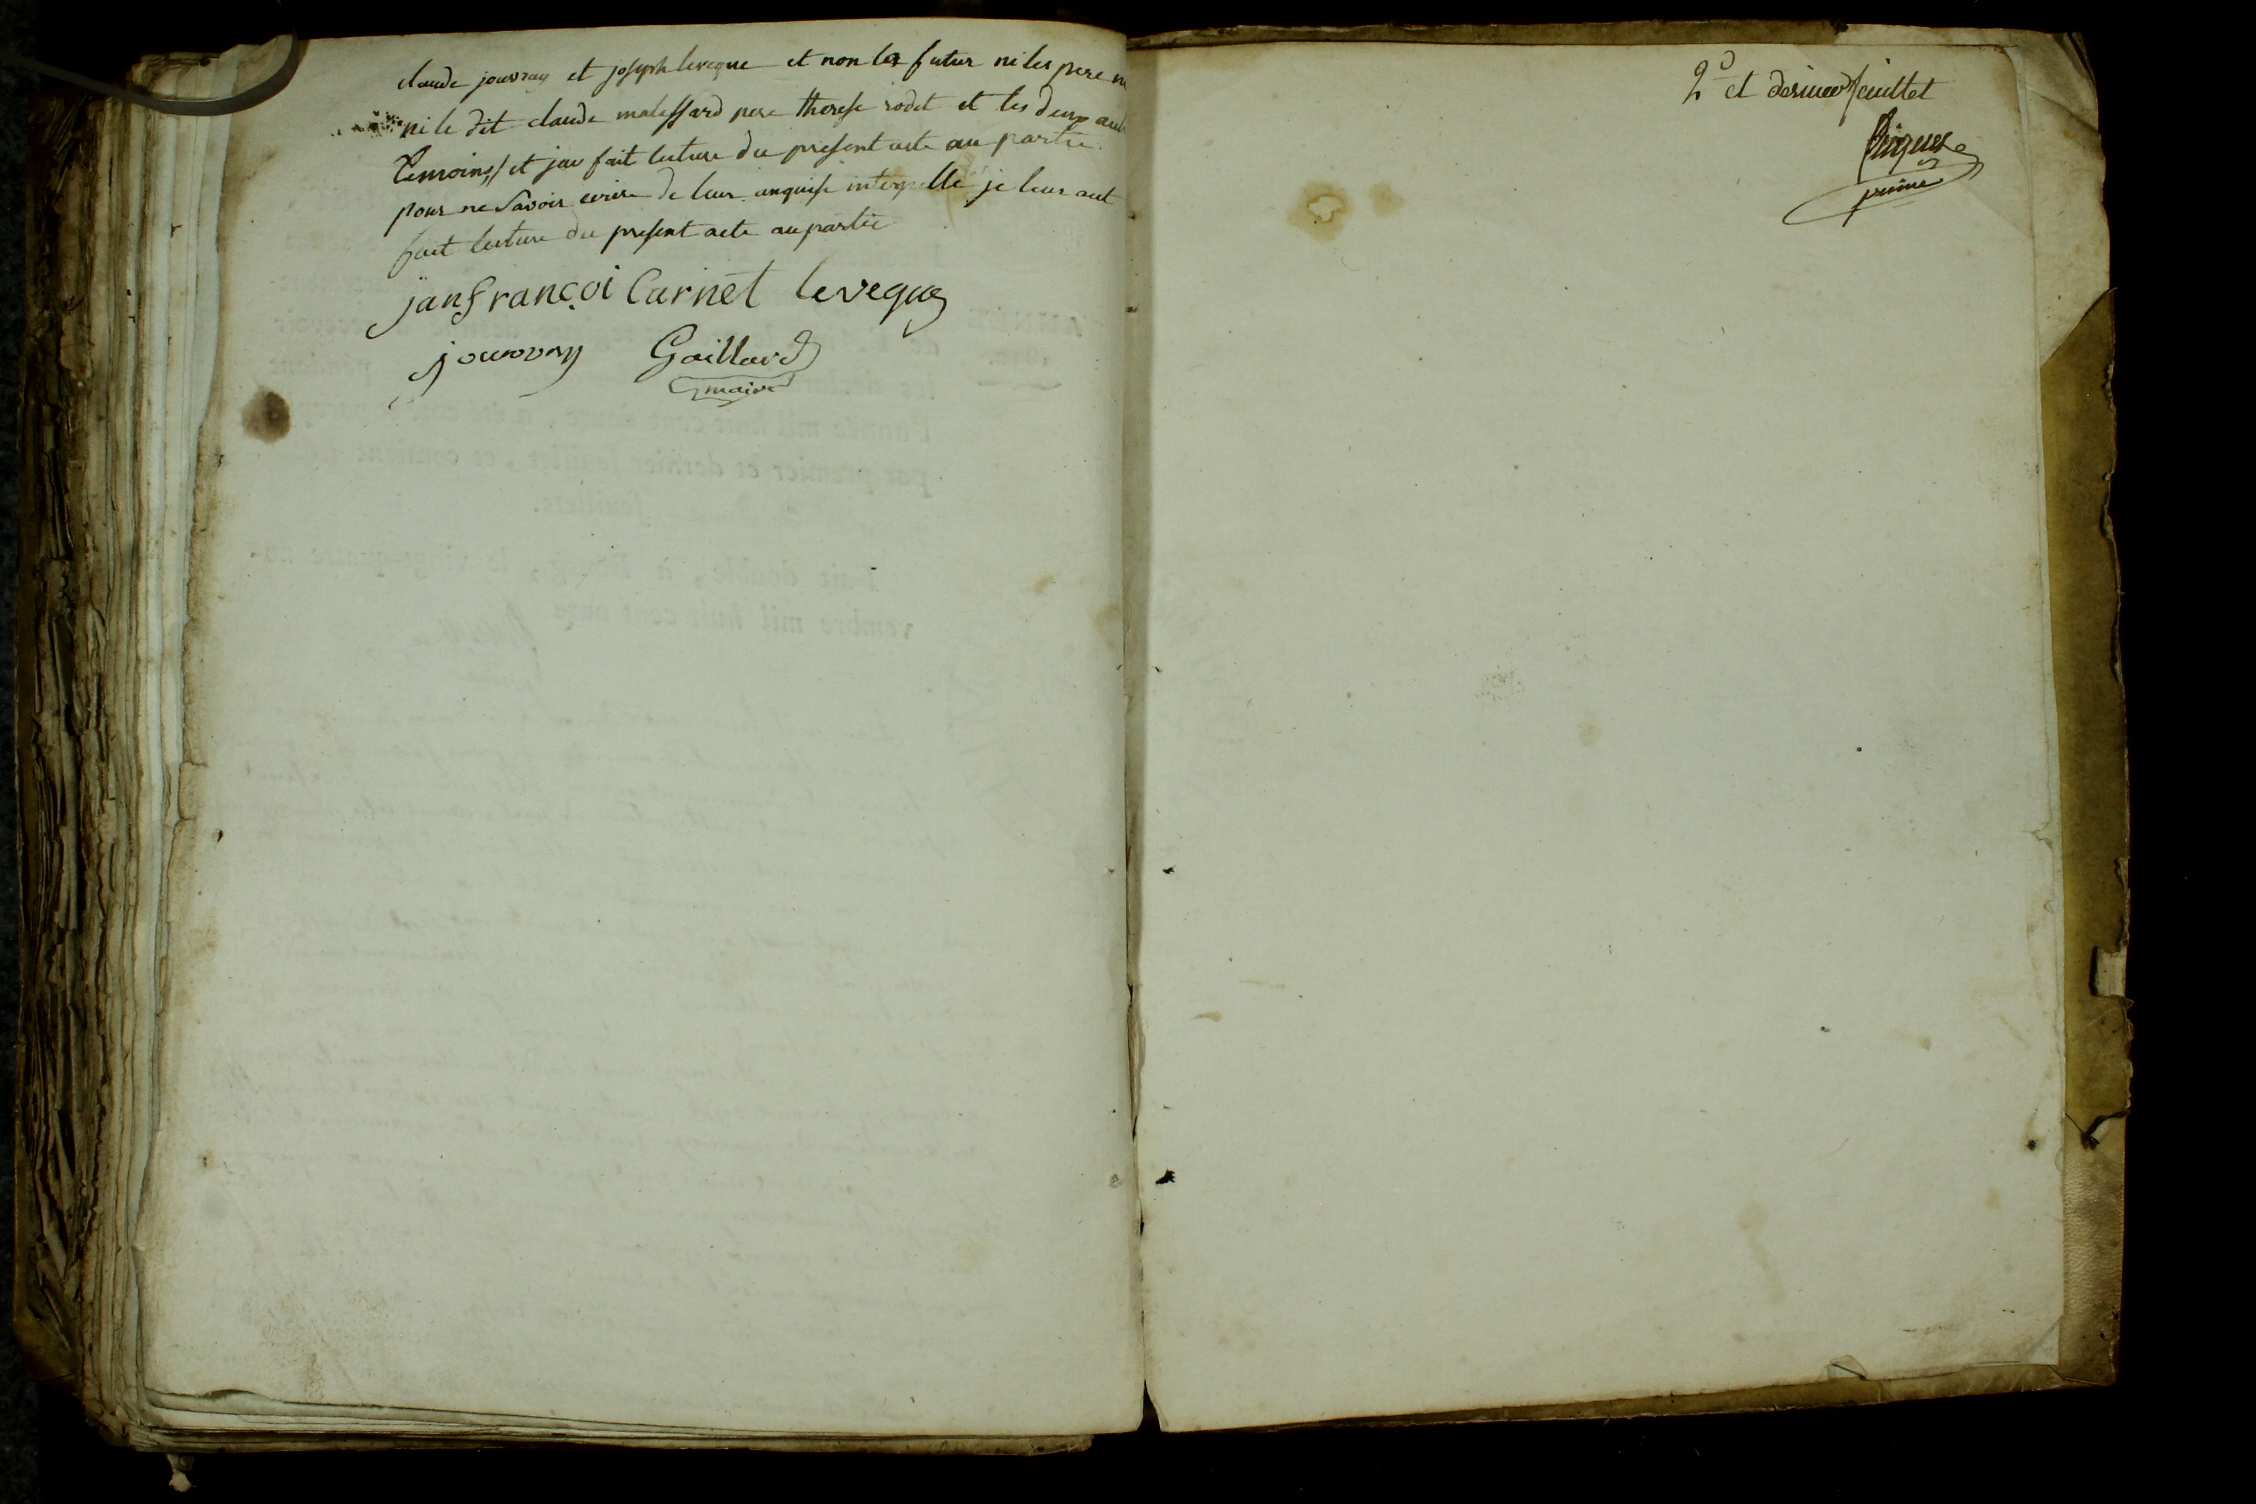 claude jouvray et joseph leveque et non les futur ni les pere
ni le dit claude malessard pere therese rodet et les deux
temoins et jai fait lecture du present acte au partie
pour ne savoir ecrire de leur anquise interpellé je leur
fait lecture du present acte au partie
janfrançoi Carnet leveque
jouvray Gaillard
maire
2d et dernier feuillet